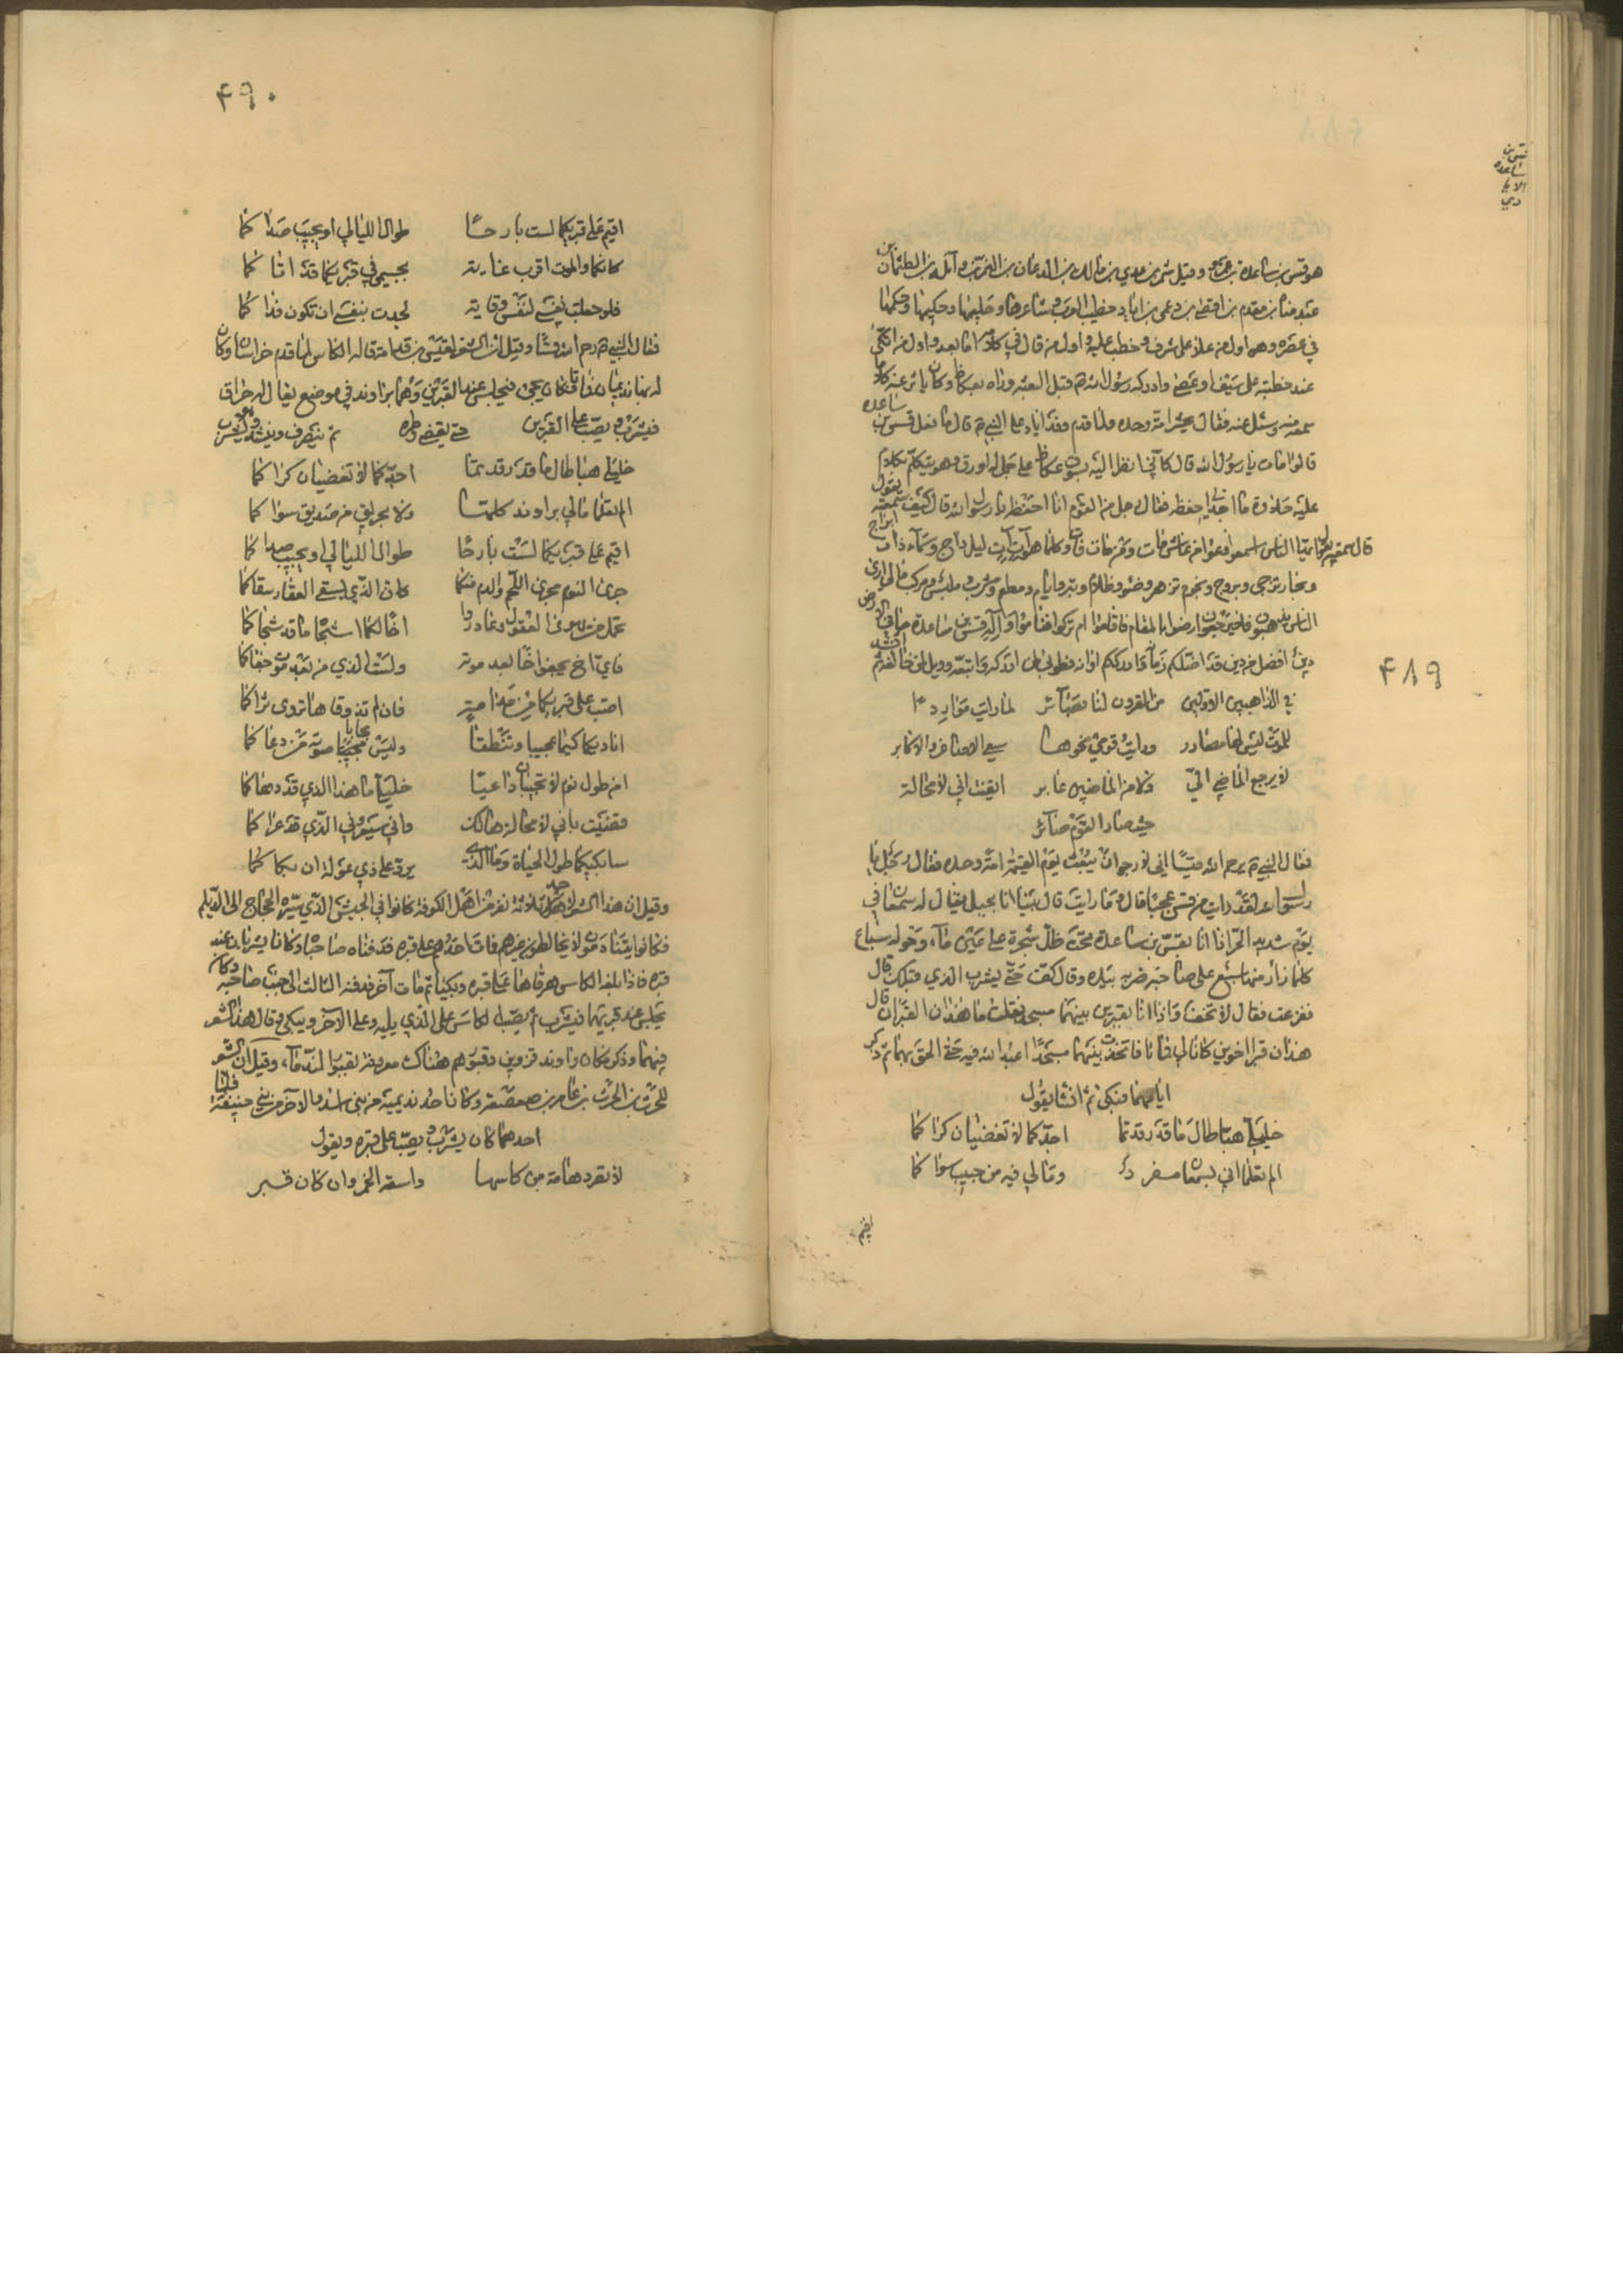 قس بن
ساعده
الايا
دي
هو قس بن ساعدة بن عمرو وقيل شمر بن عدي بن مالك بن الدعان بن النمر بن وائلة بن الطمثان بن
عبد مناة بن يقدم بن افصى بن دعمى بن اياد خطيب العرب وشاعرها وحليمها وحكيمها وحكمها
في عصره وهو اول من علا على شرف وخطب عليه واول من قال في كلامه اما بعد واول من اتكى
عند خطبته على سيف او عصى وادركه رسول الله م قبل البعثه وراه بعكاظ وكان ياثر عنه كلاما
سمعه منه وسئل عنه فقال يحشر امة وحده ولما قدم وفد اياد على النبي م قال ما فعل قس بن ساعده
قالوا مات يا رسول الله قال كاني انظر اليه بسوق عكاظ على جمل له اورق وهو يتكلم بكلام
عليه حلاوة ما اجدني احفظه فقال رجل من القوم انا احفظه يا رسول الله قال كيف سمعته يقول
قال سمعته يقول ايها الناس اسمعوا وعوا من عاش مات ومن مات فات وكلما هو آت آت ليل داج وسماء ذات ابراج
وبحار ترجى وبروج ونجوم تزهر وضوء وظلام وبر واثام ومطعم ومشرب وملبس ومركب مالي ارى
الناس يذهبون فلا يرجعون ارضوا بالمقام فاقاموا ام تركوا فناموا واله قس بن ساعدة ما في الارض
دين افضل من دين قد اظلكم زمانه وادرككم اوانه فطوبى لمن ادركه واتبعه وويل لمن خالفه ثم انشد
في الذاهبين الاولين من القرون لنا بصائر لما رايت مواردا
للموت ليس لها مصادر ورايت قومي نحوها يسعى الاصاغر والاكابر
لا يرجع الماضي الي ولا من الماضين غابر ايقنت اني لا محالة
حيث صار القوم صائر
فقال النبي م يرحم الله قسا اني لارجو ان يبعث يوم القيمة امة وحده فقال رجل يا
رسول الله لقد رايت من قس عجبا قال وما رايت قال بينا انا بجبل يقال له سمعان في
يوم شديد الحر اذا انا بقس بن ساعدة تحت ظل شجرة على عين ماء وحوله سباع
كلما زار منها سبع على صاحبه ضربه بيده وقال كف حتى يشرب الذي قبلك قال
ففزعت فقال لا تخف واذا انا بقبرين بينهما مسجد فقلت ما هذان القبران قال
هذان قبرا اخوين كانا لي فماتا فاتخذت بينهما مسجدا اعبد الله فيه حتى الحق بهما ثم ذكر
ايامهما فبكى ثم انشا يقول
خليلي هبا طال ما قد رقدتما اجدكما لا تقضيان كراكما
الم تعلما اني بسمعان مفرد وما لي فيه من حبيب سواكما
اقيم
۴۸۹
۴۹۰
اقيم على قبريكما لست بارحا طوال الليالي او يجيب صداكما
كانكما والموت اقرب غاية بجسمي في قبريكما قد اتاكما
فلو جعلت نفس لنفس وقاية لجدت بنفسي ان تكون فداكما
فقال النبي م رحم الله قسا وقيل ان الشعر لعيسى بن قدامة قاله الكاسي لما قدم خراسان وكان
له بها نديمان فماتا فكان يجيء فيجلس عند القبرين وهما براوند في موضع يقال له خزاق
فيشرب ويصب على القبرين حتى يقضي وطره ثم ينصرف وينشد
خليلي هبا طال ما قد رقدتما اجدكما لا تقضيان كراكما
الم تعلما مالي براوند كلها ولا بحزيق من صديق سواكما
اقيم على قبريكما لست بارحا طوال الليالي او يجيب صداكما
جرى النوم مجرى اللحم والدم منكما كان الذي يسقي العقار سقاكما
اخا لكما اشجاه ما قد شجاكما
فاي اخ يجفو اخا بعد موته ولست الذي من بعد موت جفاكما
اصب على قبريكما من مدامة فان لم تذوقاها تروى ثراكما
اناديكما كيما تجيبا وتنطقا وليس مجابا صوته من دعاكما
امن طول نوم لا تجيبان داعيا خليلي ما هذا الذي قد دهاكما
وقضيت باني لا محالة هالك واني سيعروني الذي قد عراكما
سابكيكما طول الحياة وما الذي يرد على ذي عولة ان بكاكما
وقيل ان هذا الشعر لاحد ثلاثة نفر من اهل الكوفة كانوا في الجيش الذي سيره الحجاج الى الديلم
فكانوا يتنادمون لا يخالطون غيرهم فمات احدهم على قبره فدفناه صاحباه وكانا يشربان عند
قبره فاذا بلغ الكاس هرقاها على قبره وبكيا ثم مات آخر فدفنه الثالث الى جنب صاحبه وكان
يجلس عند قبريهما فيشرب ثم يصب الكاس على الذي يليه وعلى الآخر ويبكي وقال هذا الشعر
فيهما وذكر مكان راوند قزوين وقبورهم هناك معروفة بقبور الندماء، وقيل ان الشعر
للحزن بن الحرث بن عامر بن صعصعة وكان احد نديميه من بني اسد والآخر من بني حنيفة فلما
احدهما كان يشرب ويصب على قبره ويقول
لا تصرد هامة من كاسها واسقه الخمر وان كان قبر